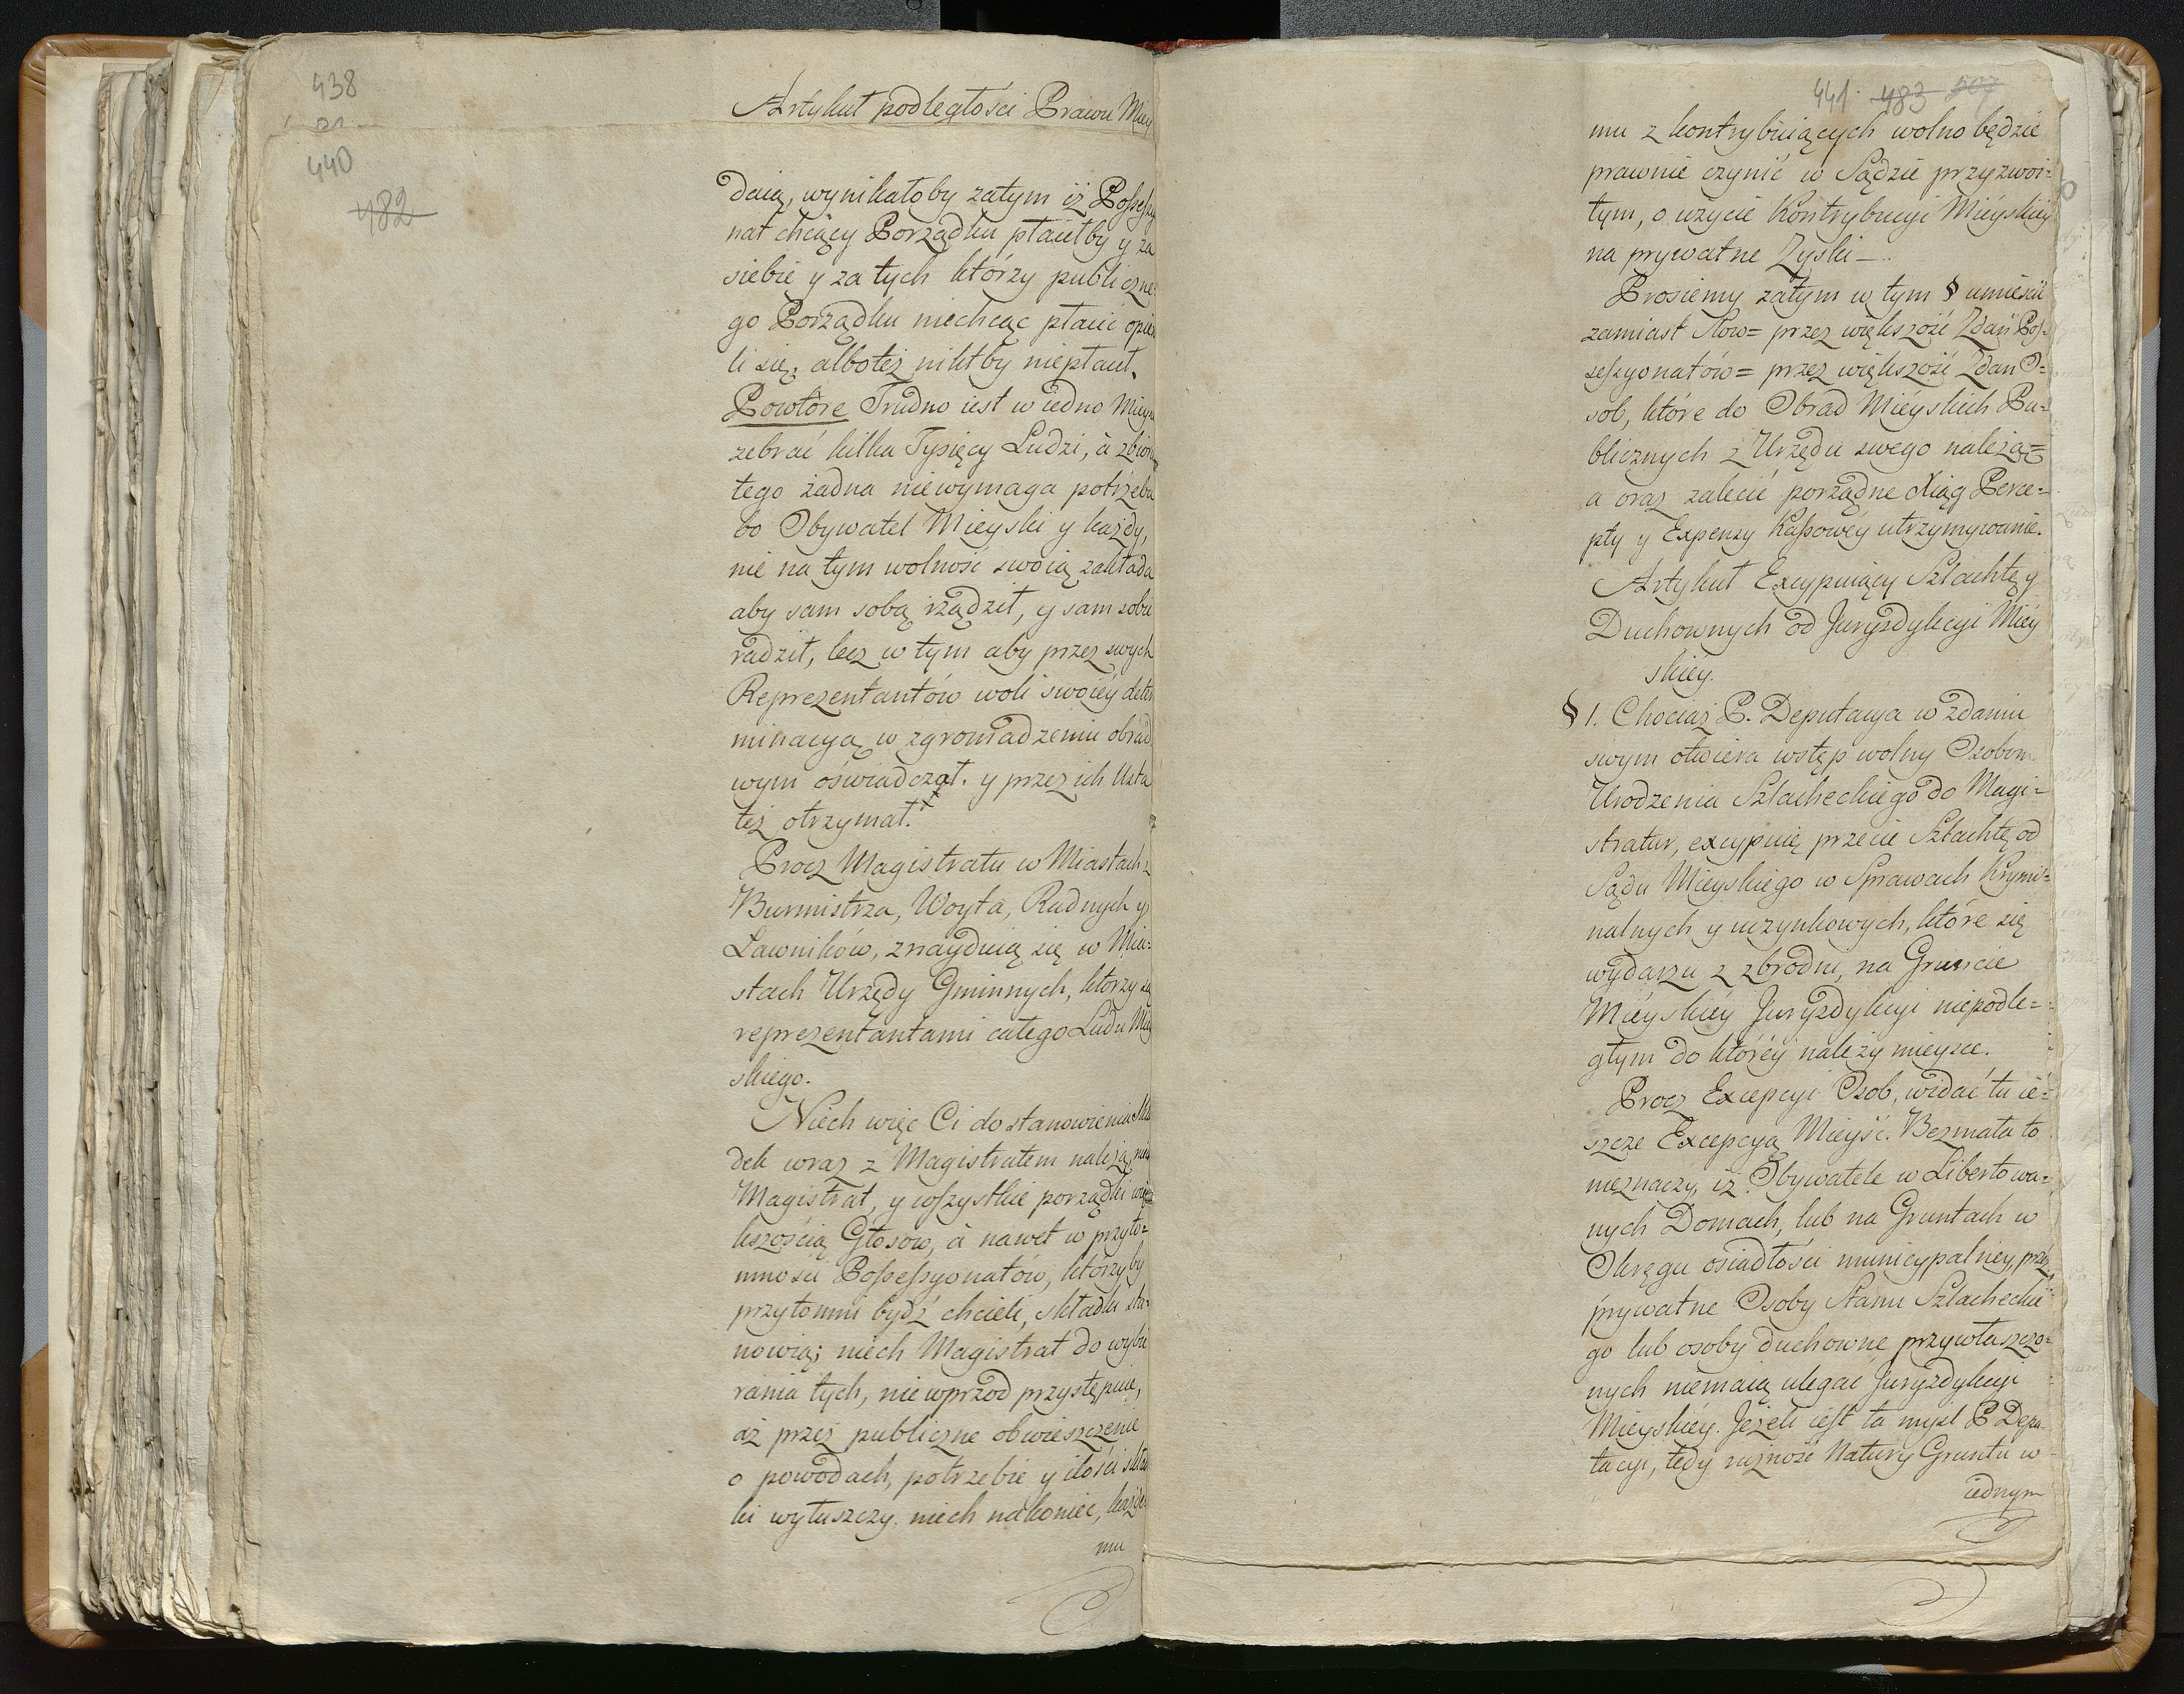 438
440
482
Artykuł podległości Prawu Miey
daią, wynikałoby zatym iż Possessyo
nat chcący Porządku płaciłby y za
siebie y za tych którzy publiczne
go Porządku niechcąc płacić opie
li się, alboteż niktby niepłacił.
Powtore Trudno iest w iedno Mieys
zebrać kilka Tysięcy Ludzi, à zbioru
tego żadna niewymaga potrzeba
bo Obywatel Mieyski y każdy,
nie na tym wolność swoią zakłada
aby sam sobą rządził, y sam sobie
radził, lecz w tym aby przez swych
Reprezentantów woli swoiéy deter
minacyą w zgromadzeniu obrad
wym oświadczał. y przez ich Usta
też otrzymał.
Procz Magistratu w Miastach z
Burmistrza, Woyta, Radnych y
Ławników, znayduią się w Mia=
stach Urzędy Gminnych, ktorzy są
reprezentantami całego Ludu Miey
skiego.
Niech więc Ci do stanowienia Skła
dek wraz z Magistratem należą, niech
Magistrat, y wszystkie porządki wię
kszością Głosow, à nawet w przyto=
mności Possessyonatów, którzyby
przytomni bydź chcieli, składki sta=
nowią; niech Magistrat do wybie
rania tych, nie wprzod przystępuie,
aż przez publiczne obwieszczenie
o powodach, potrzebie y ilości skład
ki wytłuszczy. niech nakoniec, każde
mu
441. 483 507
mu z kontrybuiących wolno będzie
prawnie czynić w Sądzie przyzwoi=
tym, o użycie Kontrybucyi Miéyskiéy
na prywatne Zyski —..
Prosiemy zatym w tym § umieścić
zamiast słow= przez większość Zdań Pos=
sessyonatów= przez większość Zdan O=
sob, które do Obrad Miéyskich Pu=
blicznych z Urzędu swego należą=
a oraz zalecić porządne Xiąg Perce=
pty y Expensy Kassowéy utrzymywanie.
Artykuł Excypuiący Szlachtę y
Duchownych od Juryzdykcyi Miéy
skiéy.
§ 1. Chociaż P. Deputacya w zdaniu
swym otwiera wstęp wolny Osobom
Urodzenia Szlacheckiego do Magi=
stratur, excypuię przecie Szlachtę od
Sądu Mieyskiego w Sprawach Krymi=
nalnych y uczynkowych, które się
wydarzą z zbrodni, na Gruncie
Miéyskiéy Juryzdykcyi niepodle=
głym do któréy należy mieysce.
Procz Excepcyi Osob, widać tu ie=
szcze Excepcyą Mieysc. Bezmała to
nieznaczy, iż Obywatele w Libertowa=
nych Domach, lub na Gruntach w
Okręgu osiadłości municypalney, przez
prywatne Osoby Stanu Szlacheckie
go lub osoby duchowne przywłaszczo=
nych niemaią ulegać Juryzdykcyi
Mieyskiéy. Jeżeli iest ta myśl P. Depu=
tacyi, tedy rużność Natury Gruntu w
iednym